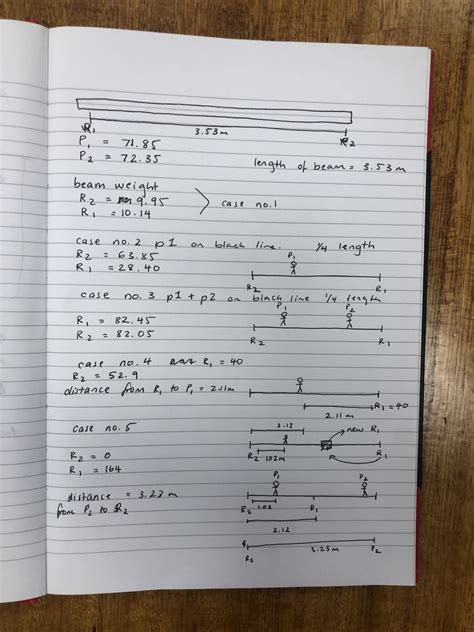 R1 3.53m R2
P1 = 71.85
P2 = 72.35 length of beam = 3.53m
beam weight
R2 = 9.95
R1 = 10.14 case no.1
case no.2 p1 on black line. 1/4 length
R2 = 63.85 P1
R1 = 28.40
R2 R1
case no. 3 p1 + p2 on black line 1/4 length
P1 P2
R1 = 82.45
R2 = 82.05
R2 R1
case no. 4 R1 = 40
R2 = 52.9
distance from R1 to P1 = 2.11m
2.11m R1 = 40
case no. 5 2.12 new R1
R2 1.02m R1
R2 = 0
R1 = 164
P1 P2
distance = 3.23m
from P2 to R2
R2 1.02 R1
2.12
3.23m
R2 P2